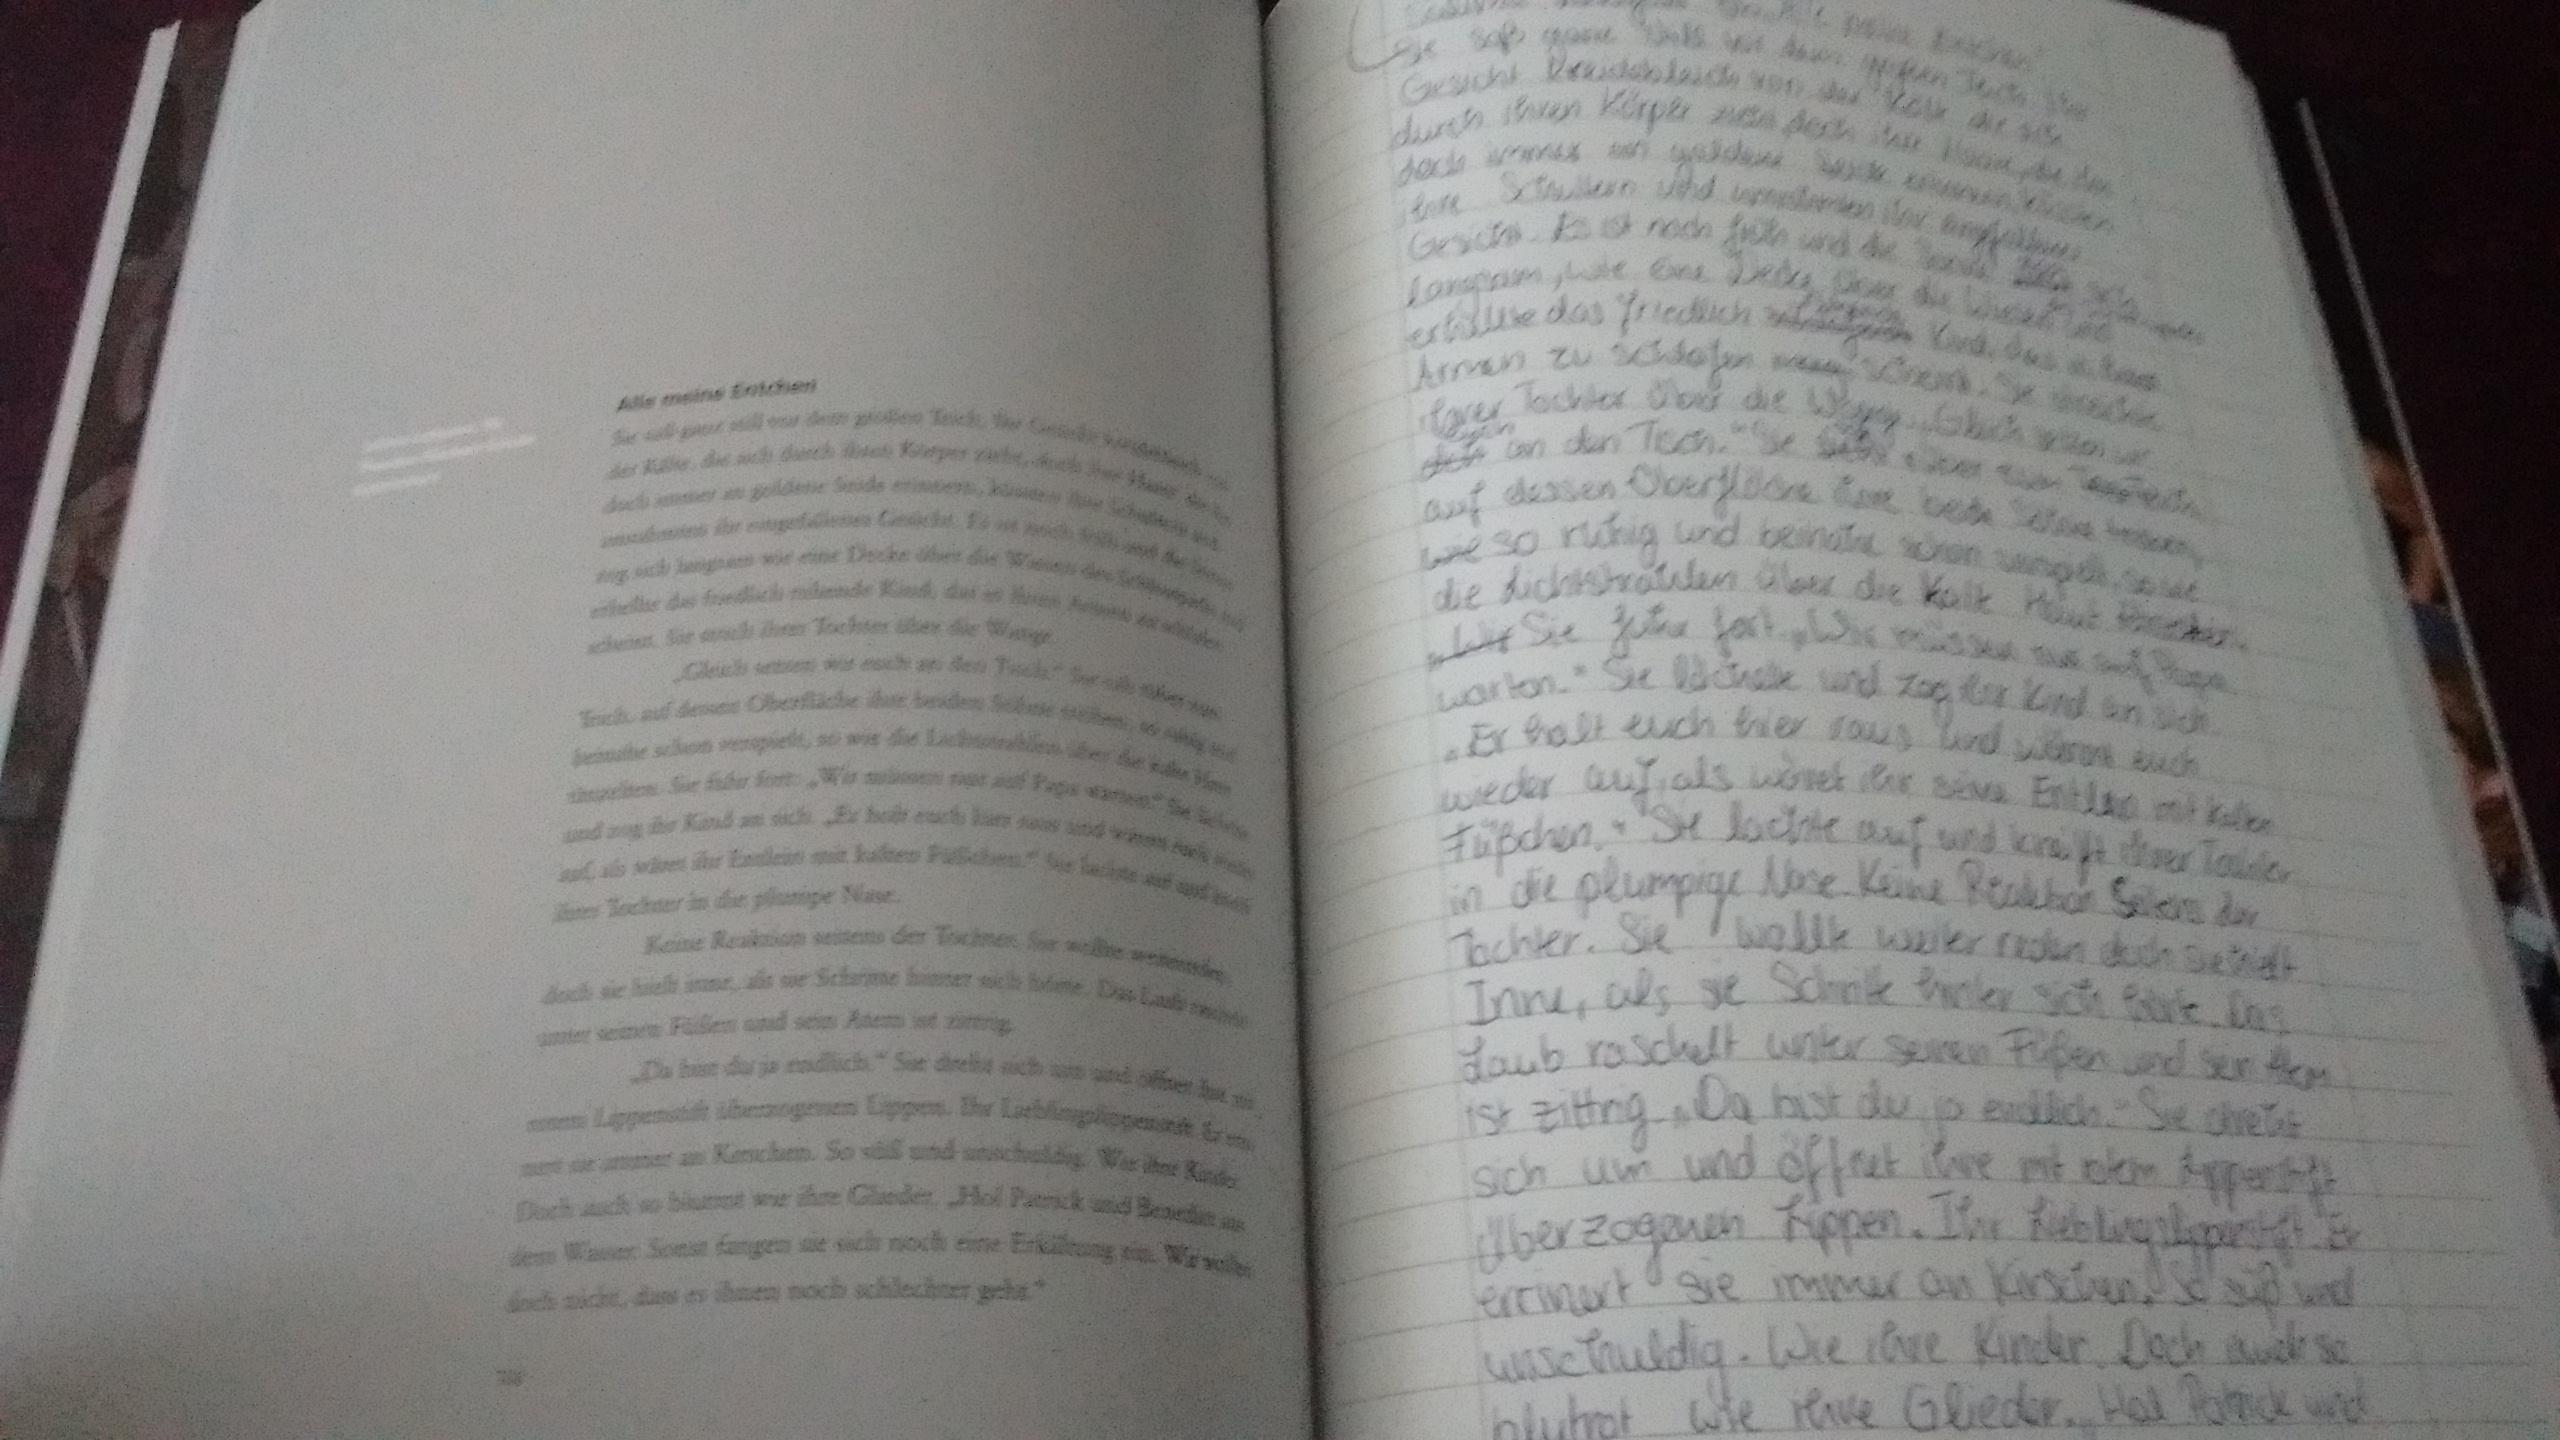 Alle meine Entchen
Sie saß ganz still vor dem großen Teich. Ihr Gesicht kreidebleich von
der Kälte, die sich durch ihren Körper zieht, doch ihre Haare, die
doch immer an goldene Seide erinnern, küssten ihre Schultern und
umrahmten ihr eingefallenes Gesicht. Es ist noch früh und die Sonne
zog sich langsam wie eine Decke über die Wiesen des und
erhellte das friedlich ruhende Kind, das in ihren Armen zu schlafen
schien. Sie strich ihrer Tochter über die Wange.
„Gleich setzen wir euch an den Tisch.“ Sie sah rüber zum
Teich, auf dessen Oberfläche ihre beiden Söhne treiben, so ruhig und
beinahe schon verspielt, so wie die Lichtstrahlen über die kalte Haut
Sie fuhr fort: „Wir müssen nur auf Papa warten.“ Sie lächelte
und zog ihr Kind an sich. „Er holt euch hier raus und wärmt euch wieder
auf, als wäret ihr Entlein mit kalten Füßchen.“ Sie lachte auf und kniff
ihrer Tochter in die plumpe Nase.
Keine Reaktion seitens der Tochter. Sie wollte weiterreden,
doch sie hielt inne, als sie Schritte hinter sich hörte. Das Laub raschelt
unter seinen Füßen und sein Atem ist zittrig.
„Da bist du ja endlich.“ Sie dreht sich um und öffnet ihre mit
rotem Lippenstift überzogenen Lippen. Ihr Lieblingslippenstift. Er erin-
nert sie immer an Kirschen. So süß und unschuldig. Wie ihre Kinder.
Doch auch so blutrot wie ihre Glieder. „Hol Patrick und Benedikt aus
dem Wasser. Sonst fangen sie sich noch eine Erkältung ein. Wir wollen
doch nicht, dass es ihnen noch schlechter geht.“
Sie saß ganz still vor dem großen Teich. Ihr
Gesicht Kreidebleich von der Kälte die sich
durch ihren Körper zieht doch ihre Haare, die
doch immer an goldene Seide erinnern küssten
ihre Schultern und umrahmten ihr eingefallenes
Gesicht. Es ist noch früh und die Sonne zog sich
langsam, wie eine Decke über die Wiesen und
erhellte das friedlich Kind, das in ihren
Armen zu schlafen schient. Sie streichte
ihrer Tochter über die Wange. „Gleich setzen wir
euch an den Tisch.“ Sie rüber zum Teich
auf dessen Oberfläche ihre beide Söhne treiben,
so ruhig und beinahe schon verspielt, so wie
die Lichtstrahlen über die Kalte Haut
Sie fuhr fort. „Wir müssen nur auf Papa
warten.“ Sie lächelte und zog ihr Kind an sich.
„Er holt euch hier raus und wärmt euch
wieder auf, als wäret ihr seine Entlein mit kalten
Füßchen.“ Sie lachte auf und kneift ihrer Tochter
in die plumpige Nase. Keine Reaktion Seitens der
Tochter. Sie wollte weiter reden doch sie hielt
Inne, als sie Schritte hinter sich hörte. Das
Laub raschelt unter seinen Füßen und sein Atem
ist zittrig. „Da bist du ja endlich.“ Sie dreht
sich um und öffnet ihre mit rotem Lippenstift
überzogenen Lippen. Ihr Lieblingslippenstift. Er
erinnert sie immer an Kirschen. So süß und
unschuldig. Wie ihre Kinder. Doch auch so
blutrot wie ihre Glieder. „Hol Patrick und